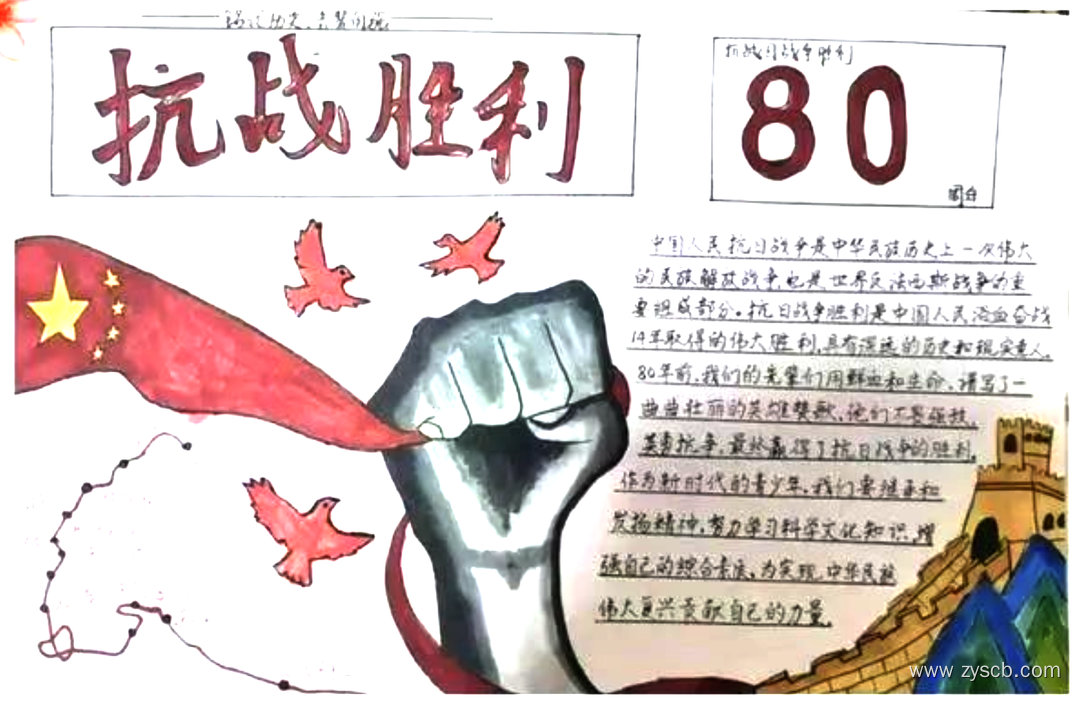 铭记历史,吾辈自强
抗战胜利
抗战日战争胜利
80
周年
中国人民抗日战争是中华民族历史上一次伟大
的民族解放战争也是世界反法西斯战争的重
要组成部分。抗日战争胜利是中国人民浴血奋战
14年取得的伟大胜利,具有深远的历史和现实意义。
80年前,我们的先辈们用鲜血和生命,谱写了一
曲曲壮丽的英雄赞歌,他们不畏强敌,
英勇抗争,最终赢得了抗日战争的胜利,
作为新时代的青少年,我们要继承和
发扬精神,努力学习科学文化知识,增
强自己的综合素质,为实现中华民族
伟大复兴贡献自己的力量。
www.zyscb.com